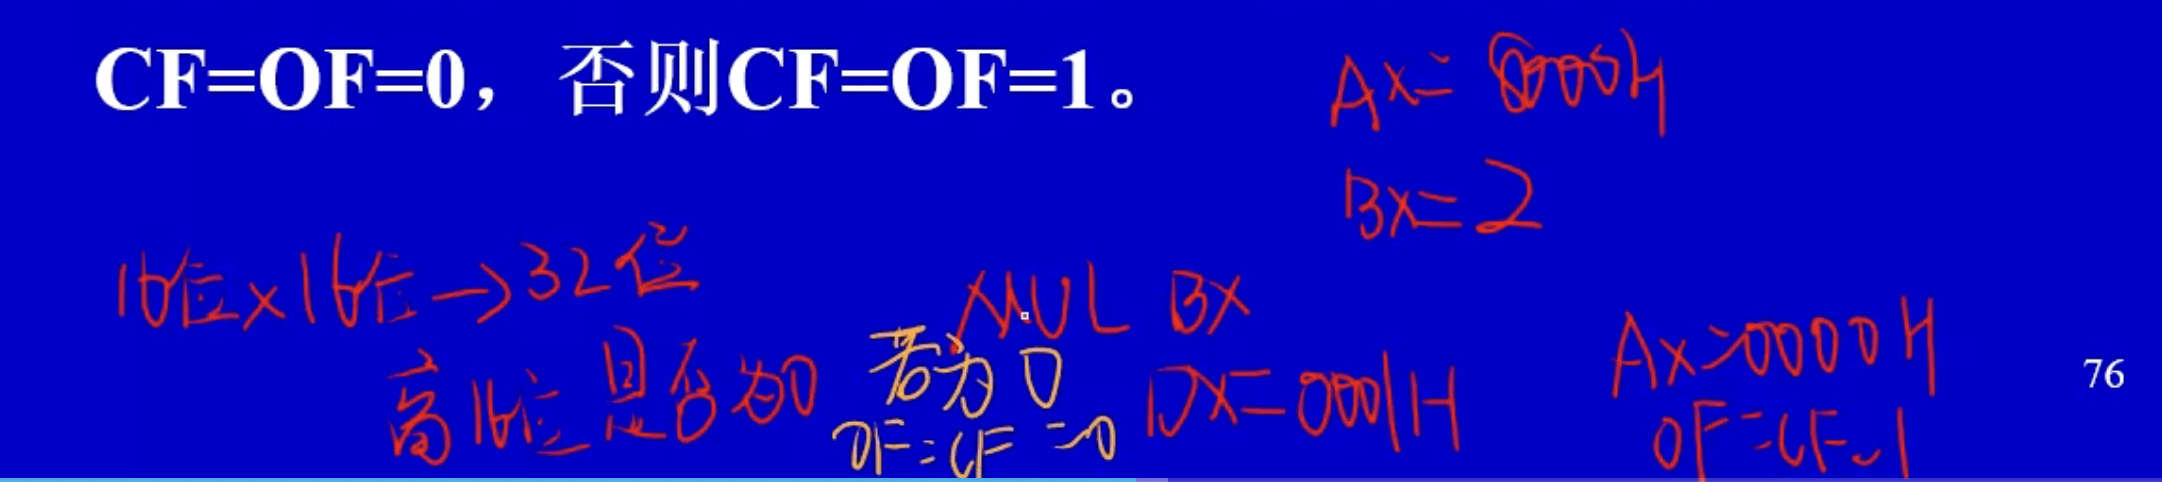 CF=OF=0，否则CF=OF=1。
AX=8000H
BX=2
16位×16位→32位
MUL BX
高16位是否为0
若为0
OF=CF=0
DX=0001H
AX=0000H
OF=CF=1
76